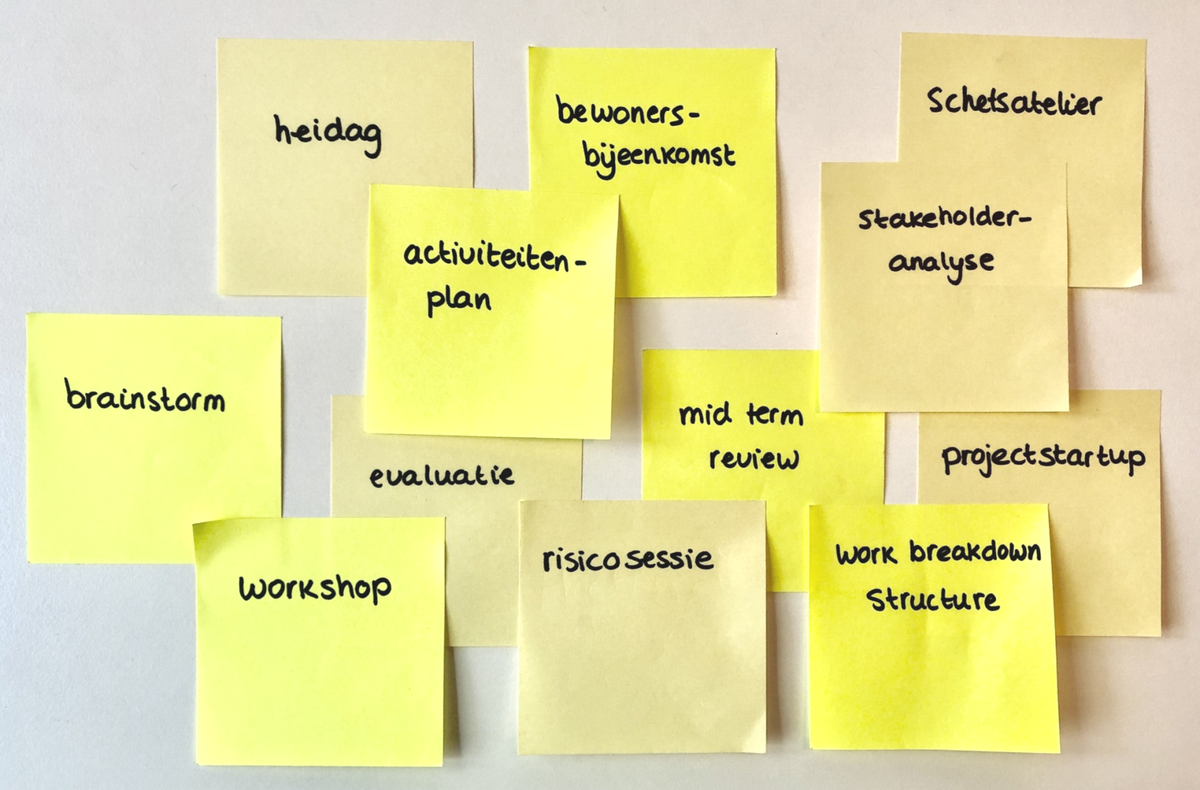 heidag
bewoners-
bijeenkomst
Schetsatelier
activiteiten-
plan
stakeholder-
analyse
brainstorm
evaluatie
mid term
review
projectstartup
workshop
risicosessie
work breakdown
structure